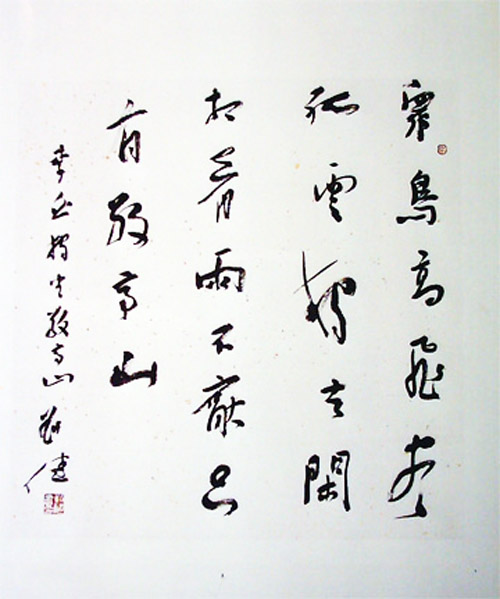 眾鳥高飛盡
孤雲獨去閑
相看兩不厭只
有敬亭山
李白獨坐敬亭山